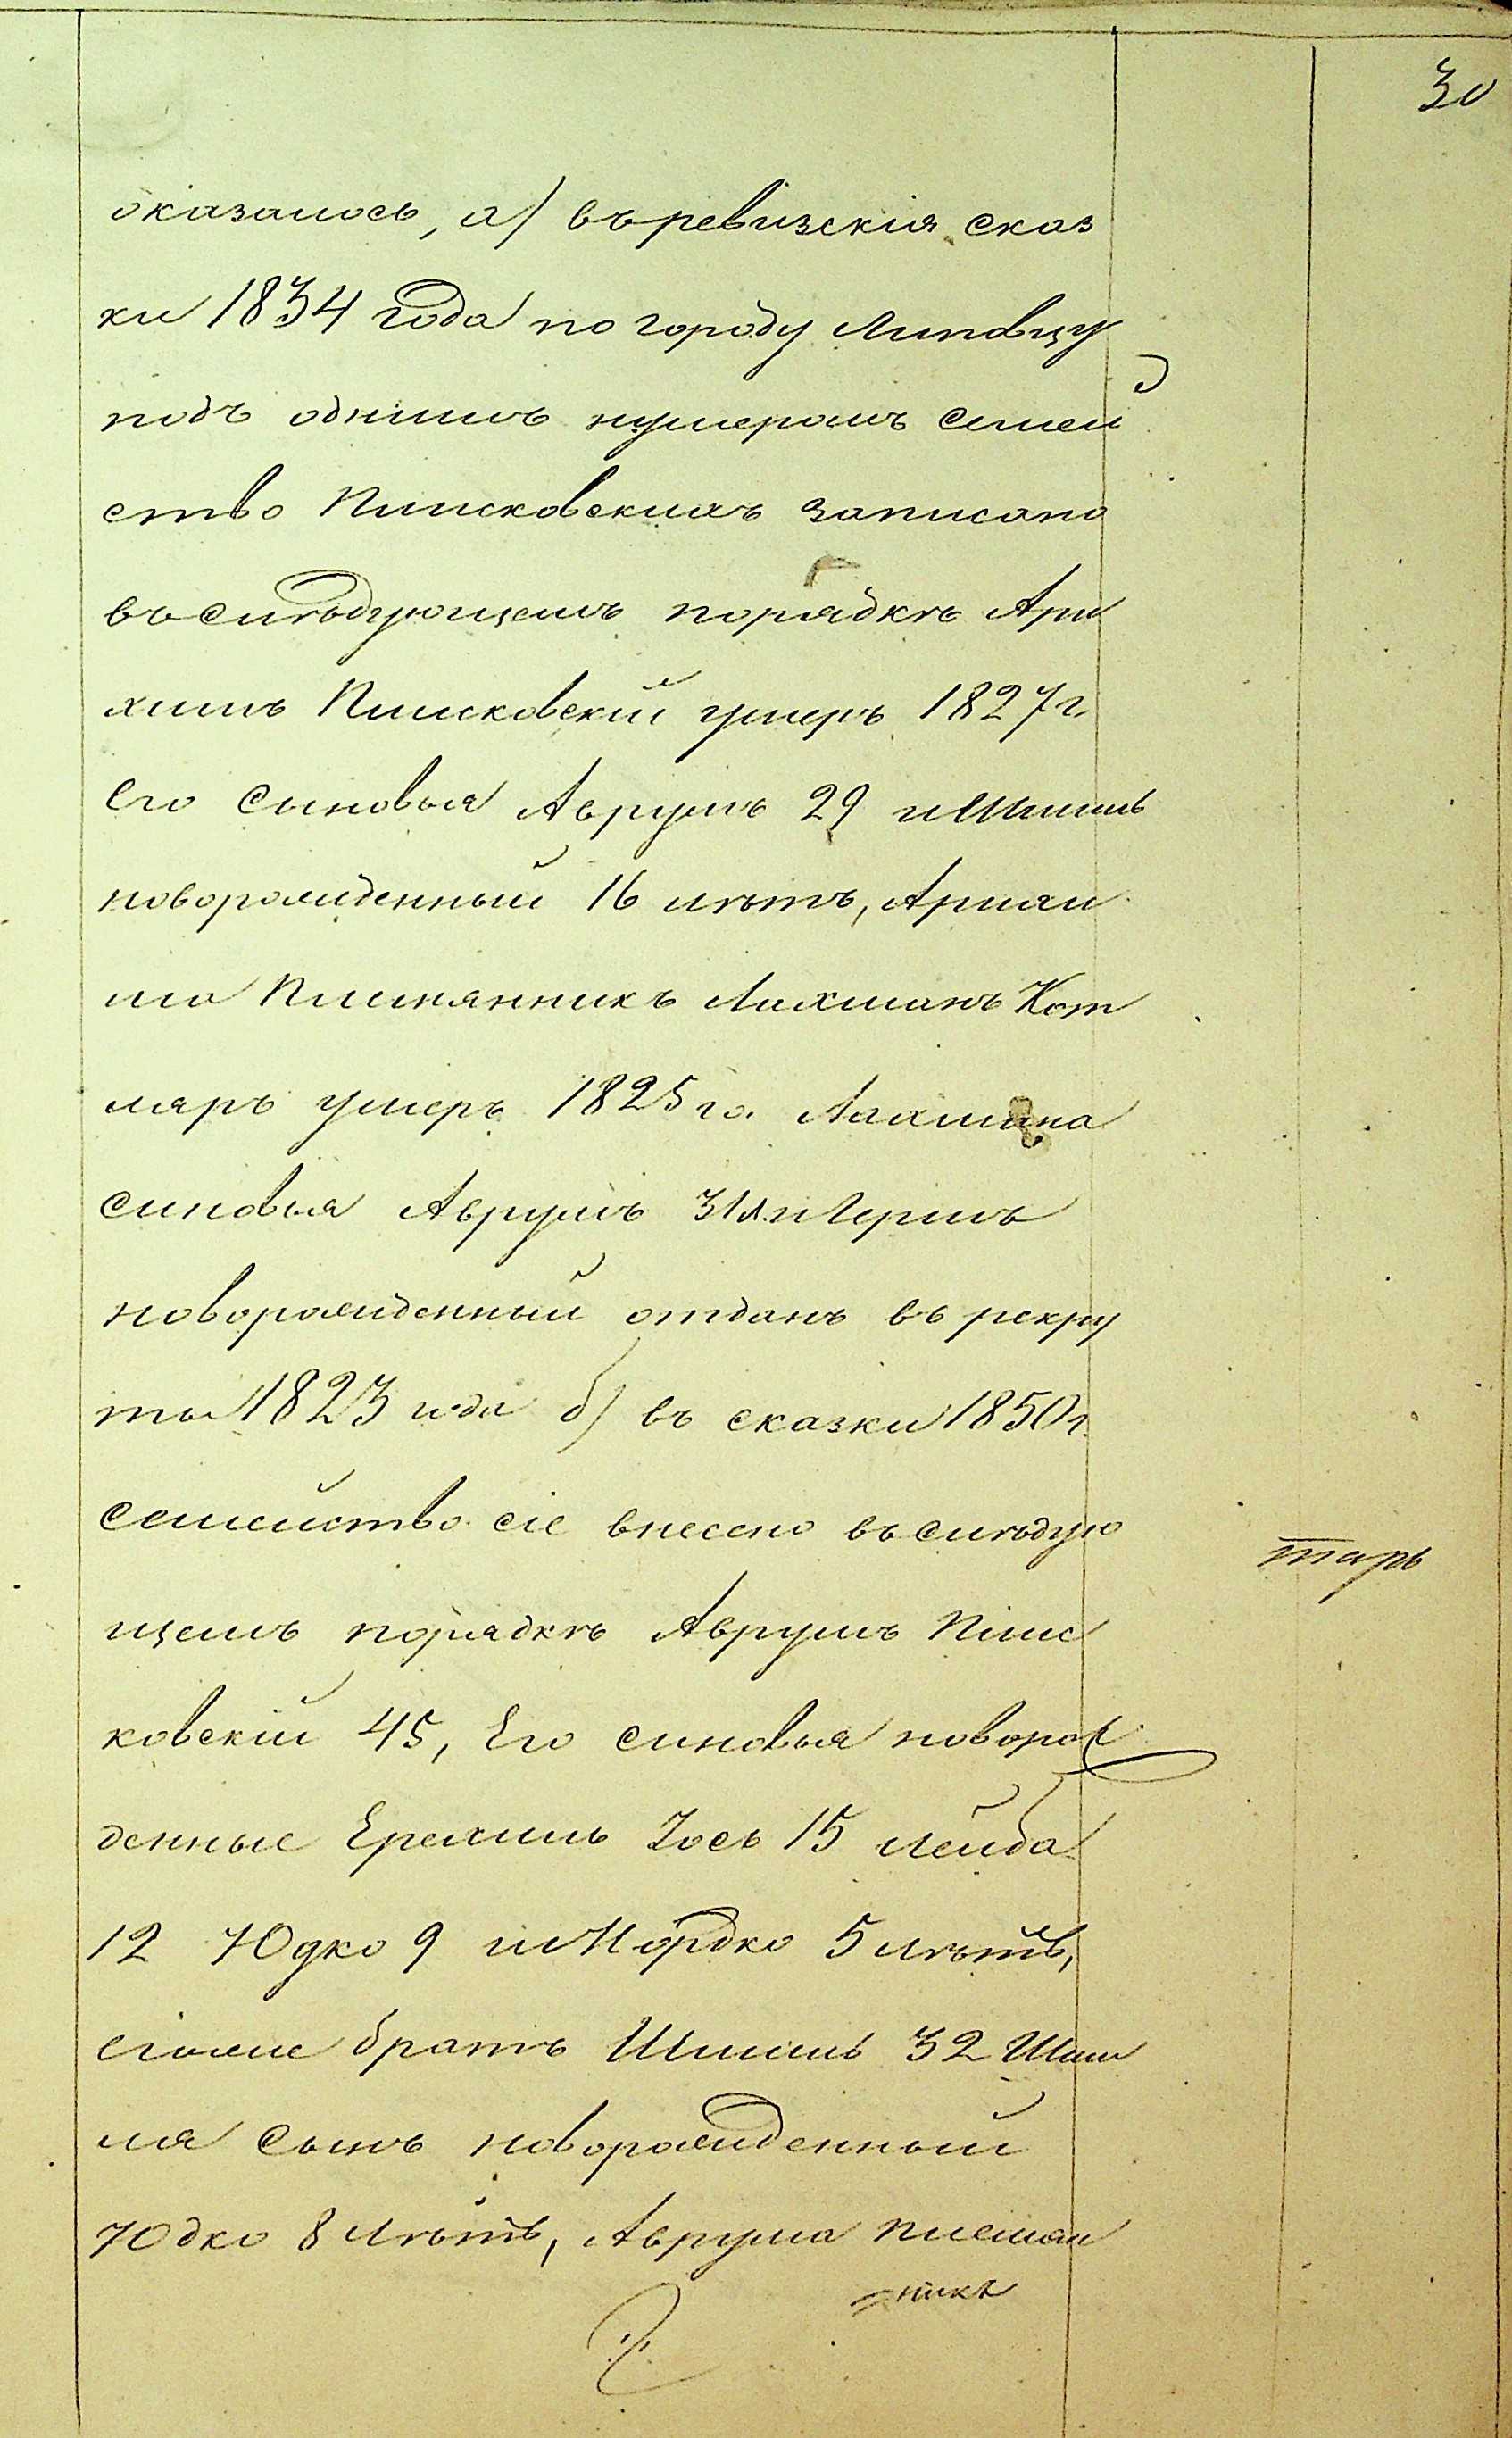 30
оказалось, а) въ ревизскія сказ
ки 1834 года по городу Липовцу
подъ однимъ нумеромъ семей
ство Плисковскихъ записано
въ слѣдующемъ порядкѣ
Плисковскій умеръ 1827 г.
его сыновья Аврумъ 29 и Шмиль
новорожденный 16 лѣтъ,
Племянникъ Лахманъ Кот
ляръ умеръ 1825 го. Лахмана
синовья Аврумъ 31 л. и Гершъ
новорожденный отданъ въ рекру
ты 1823 года б) въ сказки 1850 г.
семейство сіе внесено въ слѣдую
щемъ порядкѣ Аврумъ Плис
ковскій 45, Его синовья новорож
денные Ерахмиль Іось 15 Лейба
12 Юдко 9 и Мордко 5 лѣтъ,
егоже братъ Шмиль 32 Шми
ля сынъ новорожденный
Юдко 8 лѣтъ, Аврума племян
никъ
тарь